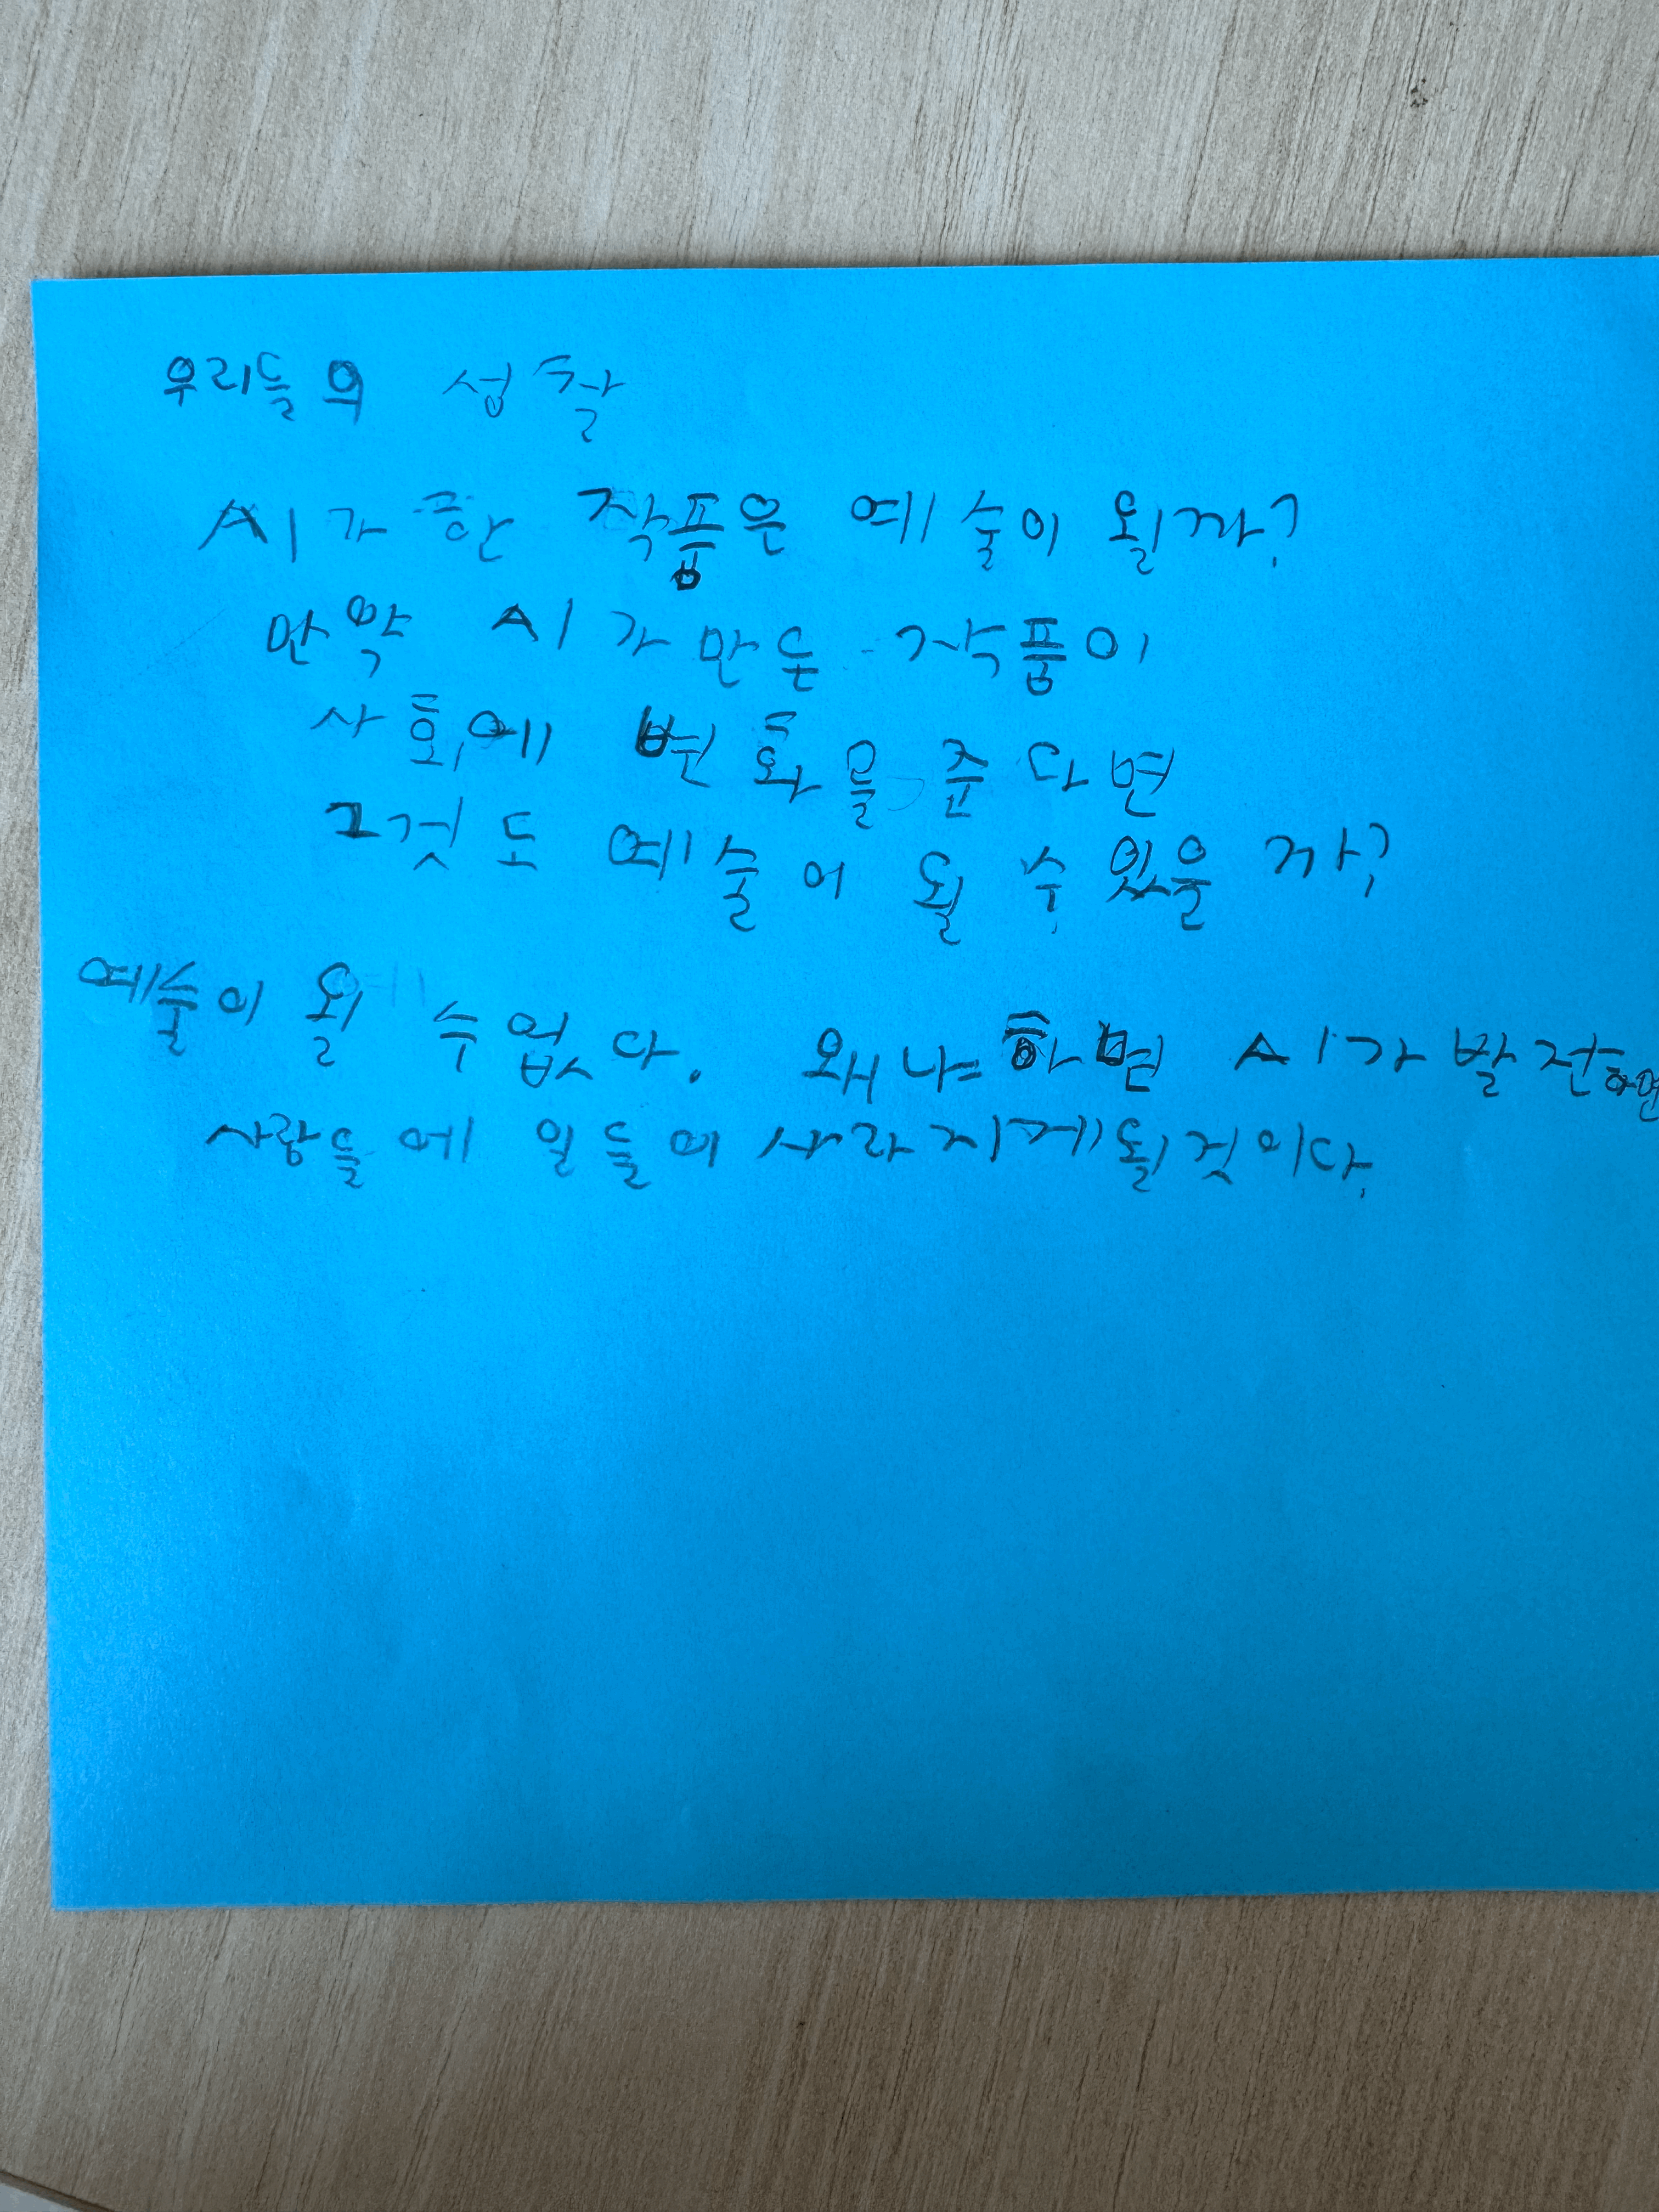 우리들의 성찰
AI가 한 작품은 예술이 될까?
만약 AI가 만든 작품이
사회에 변화을 준다면
그것도 예술이 될 수 있을까?
예술이 될 수 없다. 왜냐하면 AI가 발전하면
사람들에 일들이 사라지게 될것이다.